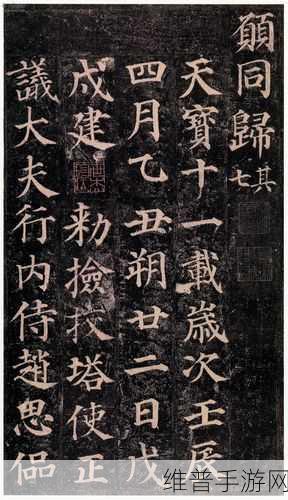 願同歸其七
天寶十一載歲次壬辰
四月乙丑朔廿二日戊
戌建勑撿挍塔使正
議大夫行内侍趙思侃
维普手游网